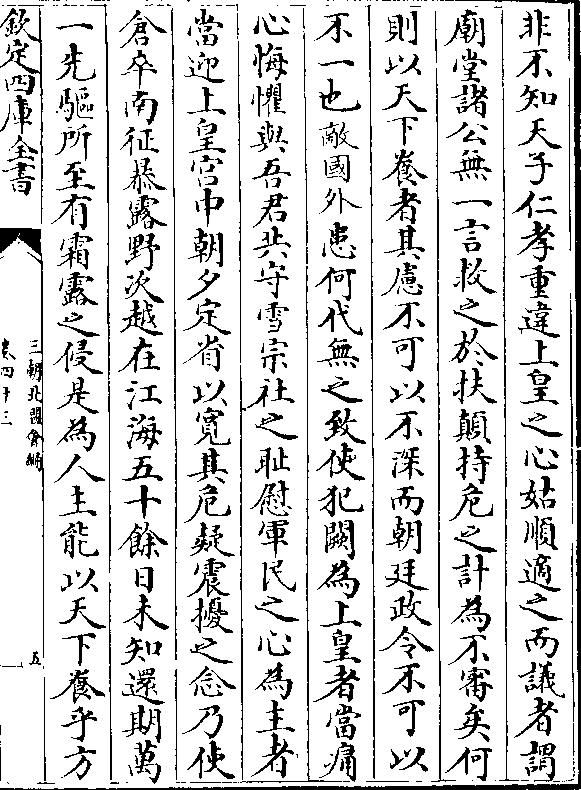 非不知天子仁孝重違上皇之心姑順適之而議者謂
廟堂諸公無一言救之於扶顛持危之計為不審矣何
則以天下養者其慮不可以不深而朝廷政令不可以
不一也敵國外患何代無之致使犯闕為上皇者當痛
心悔懼與吾君共守雪宗社之恥慰軍民之心為主者
當迎上皇宫中朝夕定省以寛其危疑震擾之念乃使
倉卒南征暴露野次越在江海五十餘日未知還期萬
一先驅所至有霜露之侵是為人主能以天下養乎方
欽定四庫全書
三朝北盟會編
卷四十三
五